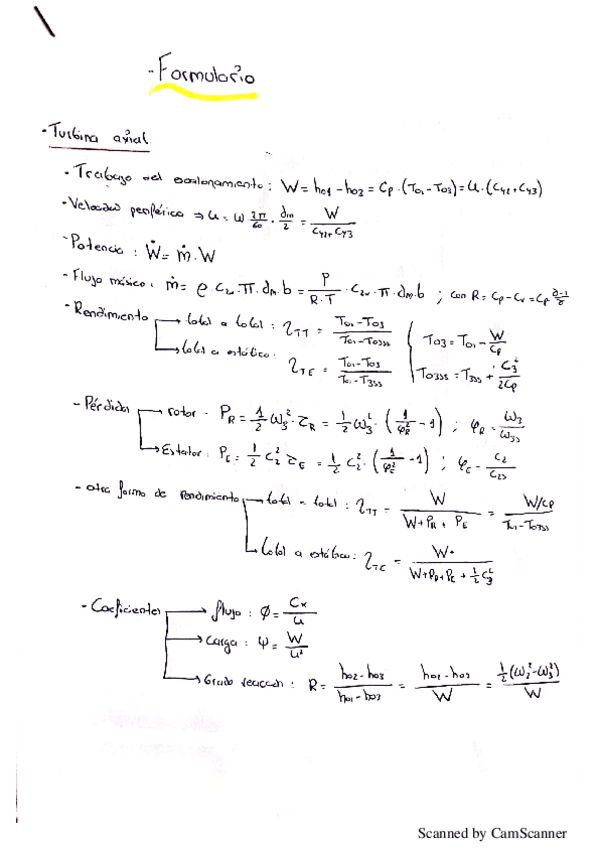 - Formulario
- Turbina axial
- Trabajo del escalonamiento: W = h01 - h02 = Cp · (T01 - T03) = u · (Cy2 + Cy3)
- Velocidad periférica ⇒ u = ω 2π/60 · dm/2 = W/(Cy2 + Cy3)
- Potencia: Ẇ = ṁ · W
- Flujo másico: ṁ = ρ · C2x · π · dm · b = P/(R · T) · C2x · π · dm · b ; con R = Cp - Cv = Cp (γ-1)/γ
- Rendimiento → total a total: ηTT = (T01 - T03)/(T01 - T03ss) { T03 = T01 - W/Cp
→ total a estático: ηTE = (T01 - T03)/(T01 - T3ss) { T03ss = T3ss + C3²/2Cp
- Pérdidas → rotor: PR = 1/2 ω3² · ζR = 1/2 ω3² · (1/φR² - 1) ; φR = ω3/ω3s
→ Estator: PE = 1/2 C2² ζE = 1/2 C2² · (1/φE² - 1) ; φE = C2/C2s
- otra forma de rendimiento → total - total: ηTT = W/(W + PR + PE) = (W/Cp)/(T01 - T03ss)
→ total a estático: ηTE = W/(W + PR + PE + 1/2 C3²)
- Coeficientes → flujo: Φ = Cx/u
→ Carga: Ψ = W/u²
→ Grado reacción: R = (h02 - h03)/(h01 - h03) = (h02 - h03)/W = 1/2(ω2² - ω3²)/W
Scanned by CamScanner